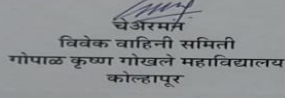 चेअरमन
विवेक वाहिनी समिती
गोपाळ कृष्ण गोखले महाविद्यालय
कोल्हापूर